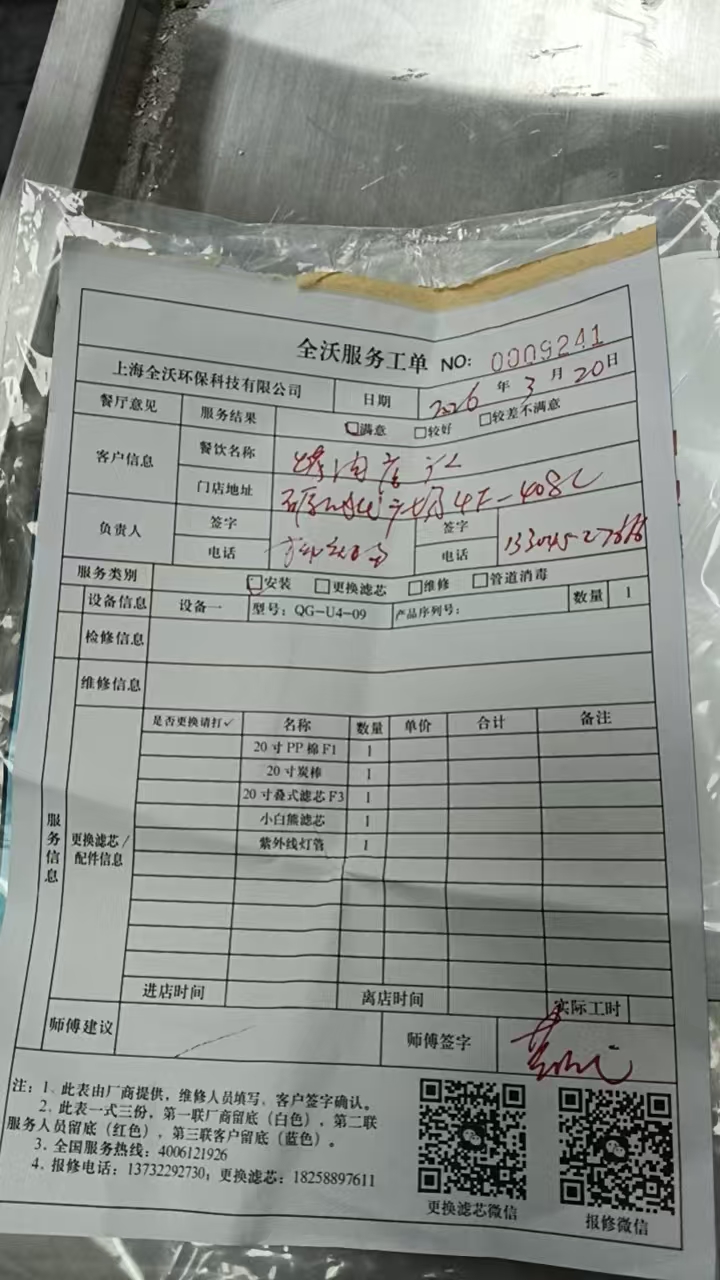 全沃服务工单 NO: 0009241
上海全沃环保科技有限公司 日期 2026年3月20日
餐厅意见 服务结果 □满意 □较好 □较差不满意
客户信息 餐饮名称
门店地址 4F-408
负责人 签字 签字
电话 电话
服务类别 □安装 □更换滤芯 □维修 □管道消毒
设备信息 设备一 型号：QG-U4-09 产品序列号： 数量 1
检修信息
维修信息
服务信息
更换滤芯/配件信息
是否更换请打✓ 名称 数量 单价 合计 备注
20寸PP棉F1 1
20寸炭棒 1
20寸叠式滤芯F3 1
小白熊滤芯 1
紫外线灯管 1
进店时间 离店时间 实际工时
师傅建议 师傅签字
注：1、此表由厂商提供，维修人员填写、客户签字确认。
2、此表一式三份，第一联厂商留底（白色），第二联
服务人员留底（红色），第三联客户留底（蓝色）。
3、全国服务热线：4006121926
4、报修电话：13732292730；更换滤芯：18258897611
更换滤芯微信 报修微信